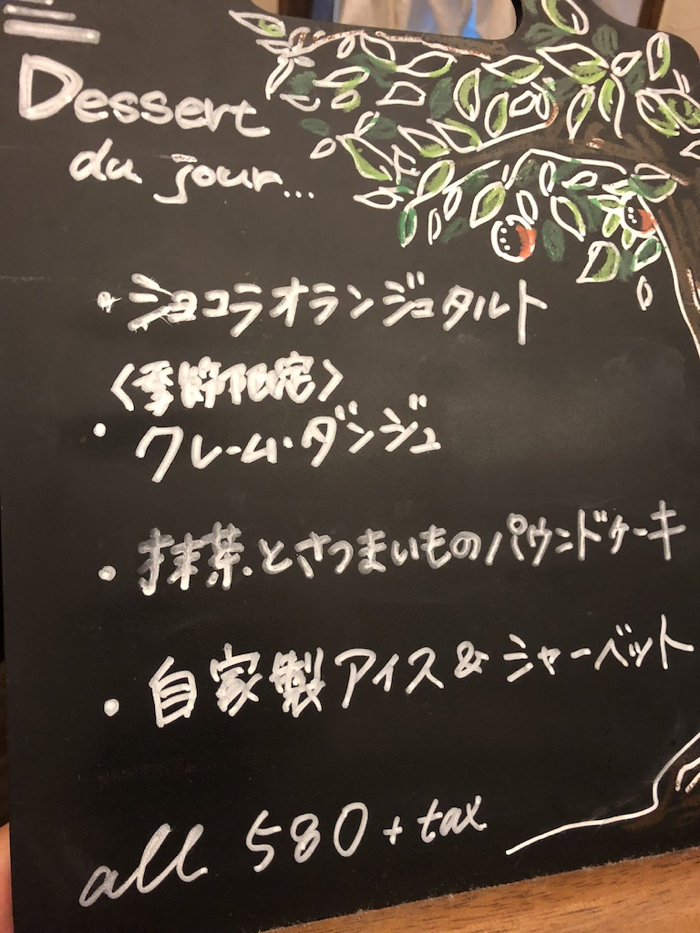 Dessert
du jour...
・ショコラオランジュタルト
〈季節限定〉
・クレーム・ダンジュ
・抹茶とさつまいものパウンドケーキ
・自家製アイス&シャーベット
all 580+tax